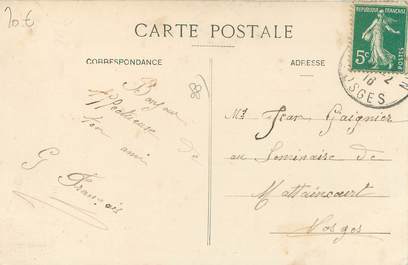 20 €
CARTE POSTALE
CORRESPONDANCE
ADRESSE
REPUBLIQUE FRANÇAISE
5c
18 2
VOSGES
Bonjour
affectueux de
ton ami
G François
Mr Jean Gaignier
au Séminaire de
Mattaincourt
Vosges